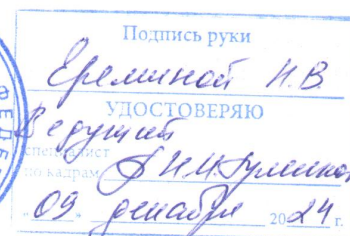 Подпись руки
Ереминой Н.В.
УДОСТОВЕРЯЮ
Ведущий
специалист
по кадрам
09 декабря 2024 г.